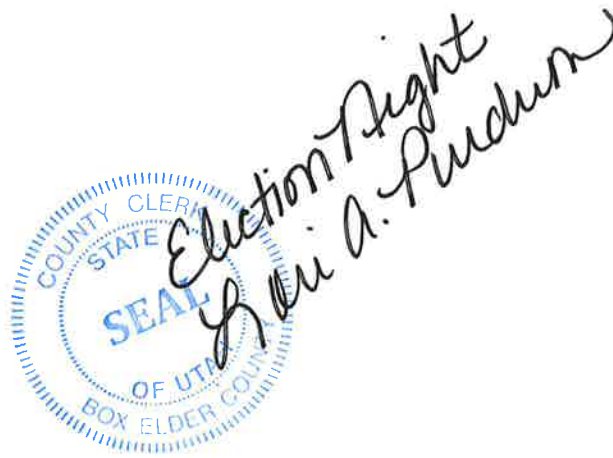 Election Night
Lori A. Purdum
COUNTY CLERK
STATE
SEAL
OF UTAH
BOX ELDER COUNTY